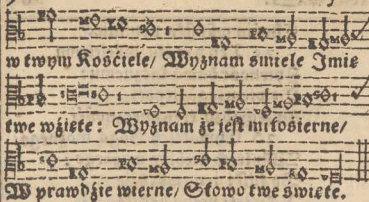 w twym Kośćiele/ Wyznam śmiele Imię
twe wźięte: Wyznam że jest miłośierne/
W prawdźie wierne/ Słowo twe święte.